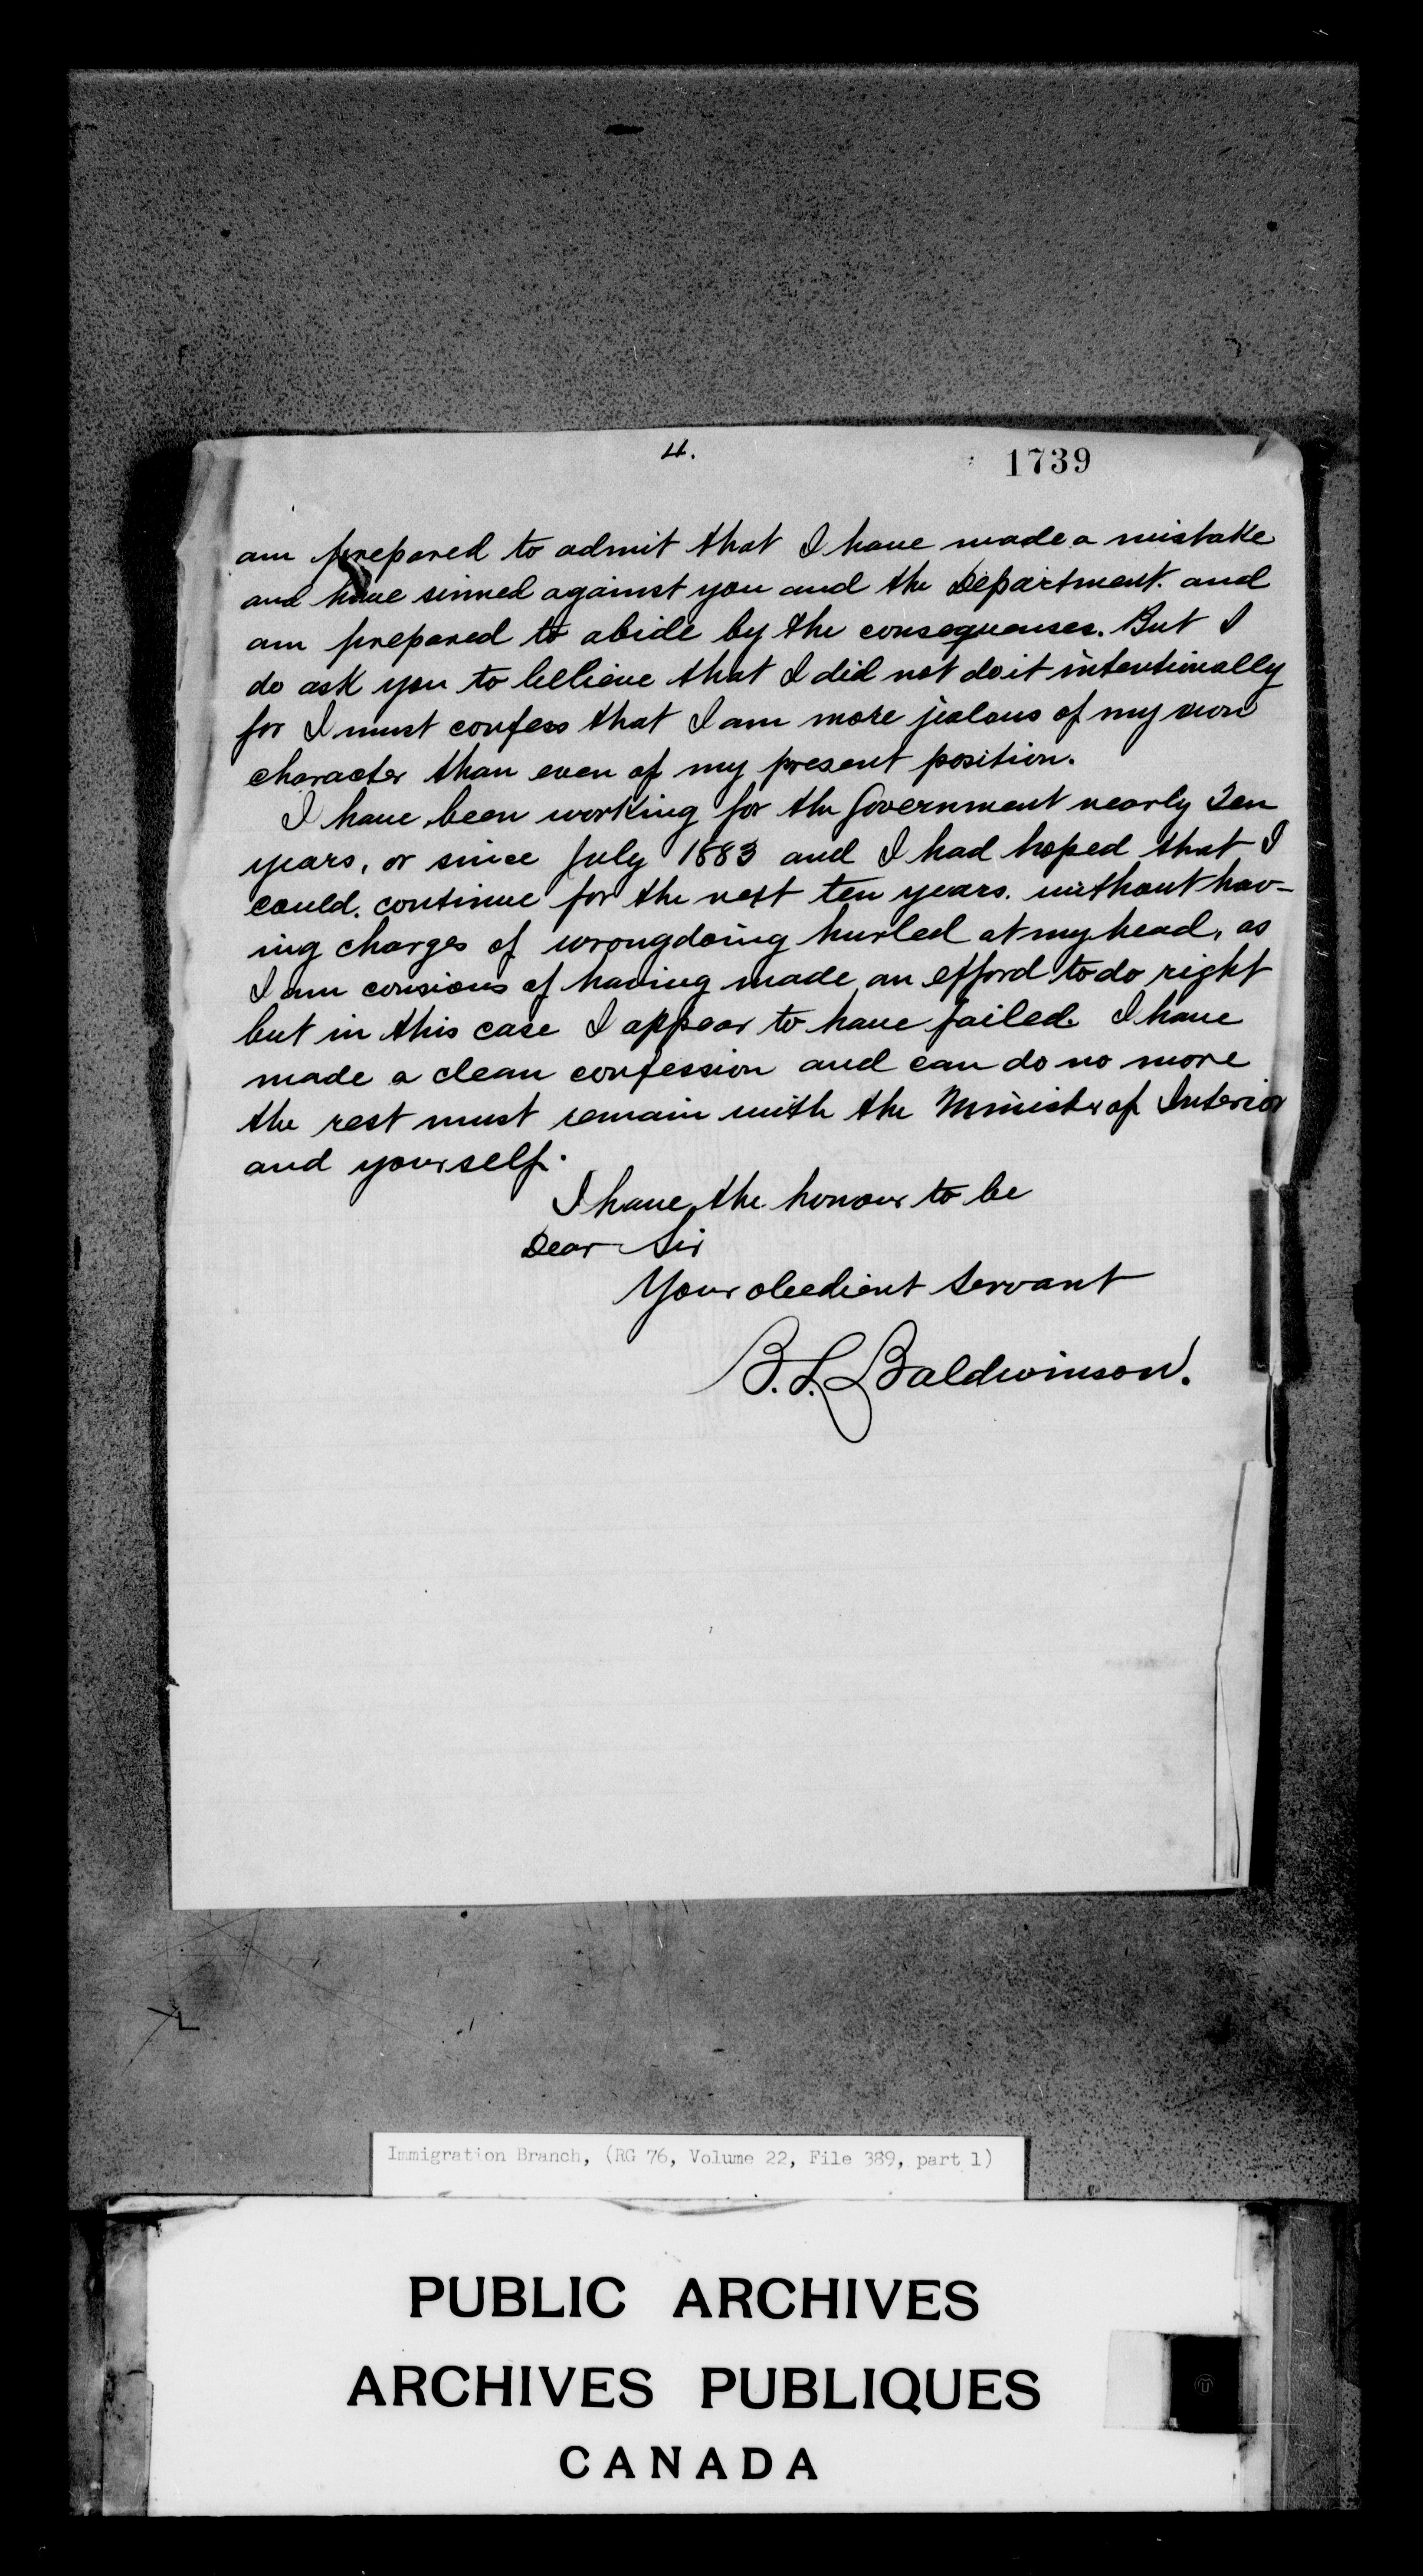 4.
1739
am prepared to admit that I have made a mistake
and have sinned against you and the Department. and
am prepared to abide by the consequenses. But I
do ask you to bellieve that I did not do it intentionally
for I must confess that I am more jealous of my own
character than even of my present position.
I have been working for the Government nearly Ten
years, or since July 1883 and I had hoped that I
could. continue for the next ten years. without hav-
ing charges of wrongdoing hurled at my head, as
I am consious of having made an efford to do right
but in this case I appear to have failed. I have
made a clean confession and can do no more
the rest must remain with the Minister of Interior
and yourself.
I have the honour to be
Dear Sir
Your obedient Servant
B. L. Baldwinson.
Immigration Branch, (RG 76, Volume 22, File 389, part 1)
PUBLIC ARCHIVES
ARCHIVES PUBLIQUES
CANADA